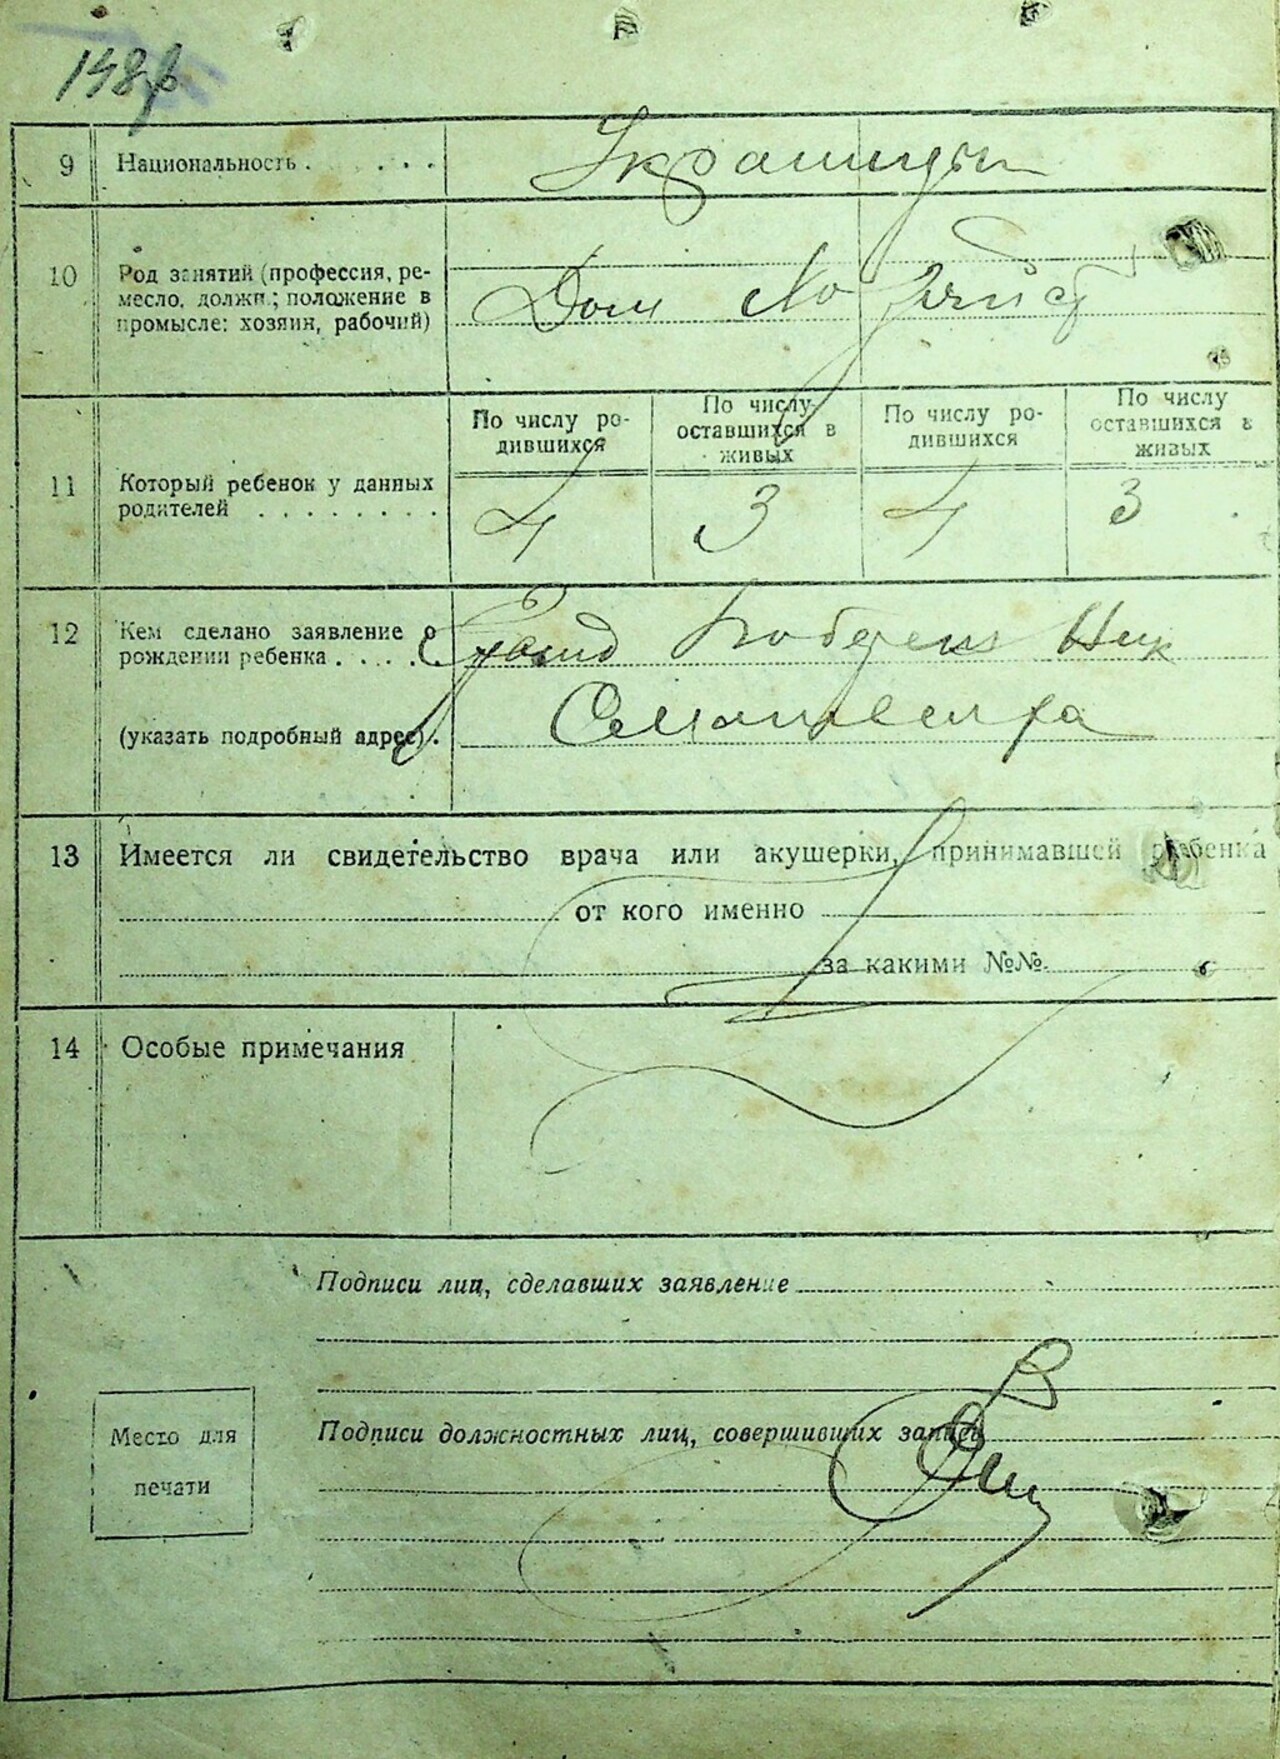 9 Национальность . . . . Украинцы
10 Род занятий (профессия, ре-
месло, должн.; положение в
промысле: хозяин, рабочий)
Дом Хозяйст
По числу ро-
дившихся
По числу
оставшихся в
живых
По числу ро-
дившихся
По числу
оставшихся в
живых
11 Который ребенок у данных
родителей . . . . . . . .
4 3 4 3
12 Кем сделано заявление о
рождении ребенка . . . .
(указать подробный адрес) .
13 Имеется ли свидетельство врача или акушерки, принимавшей ребенка
от кого именно
за какими №№
14 Особые примечания
Подписи лиц, сделавших заявление
Подписи должностных лиц, совершивших запись
Место для
печати